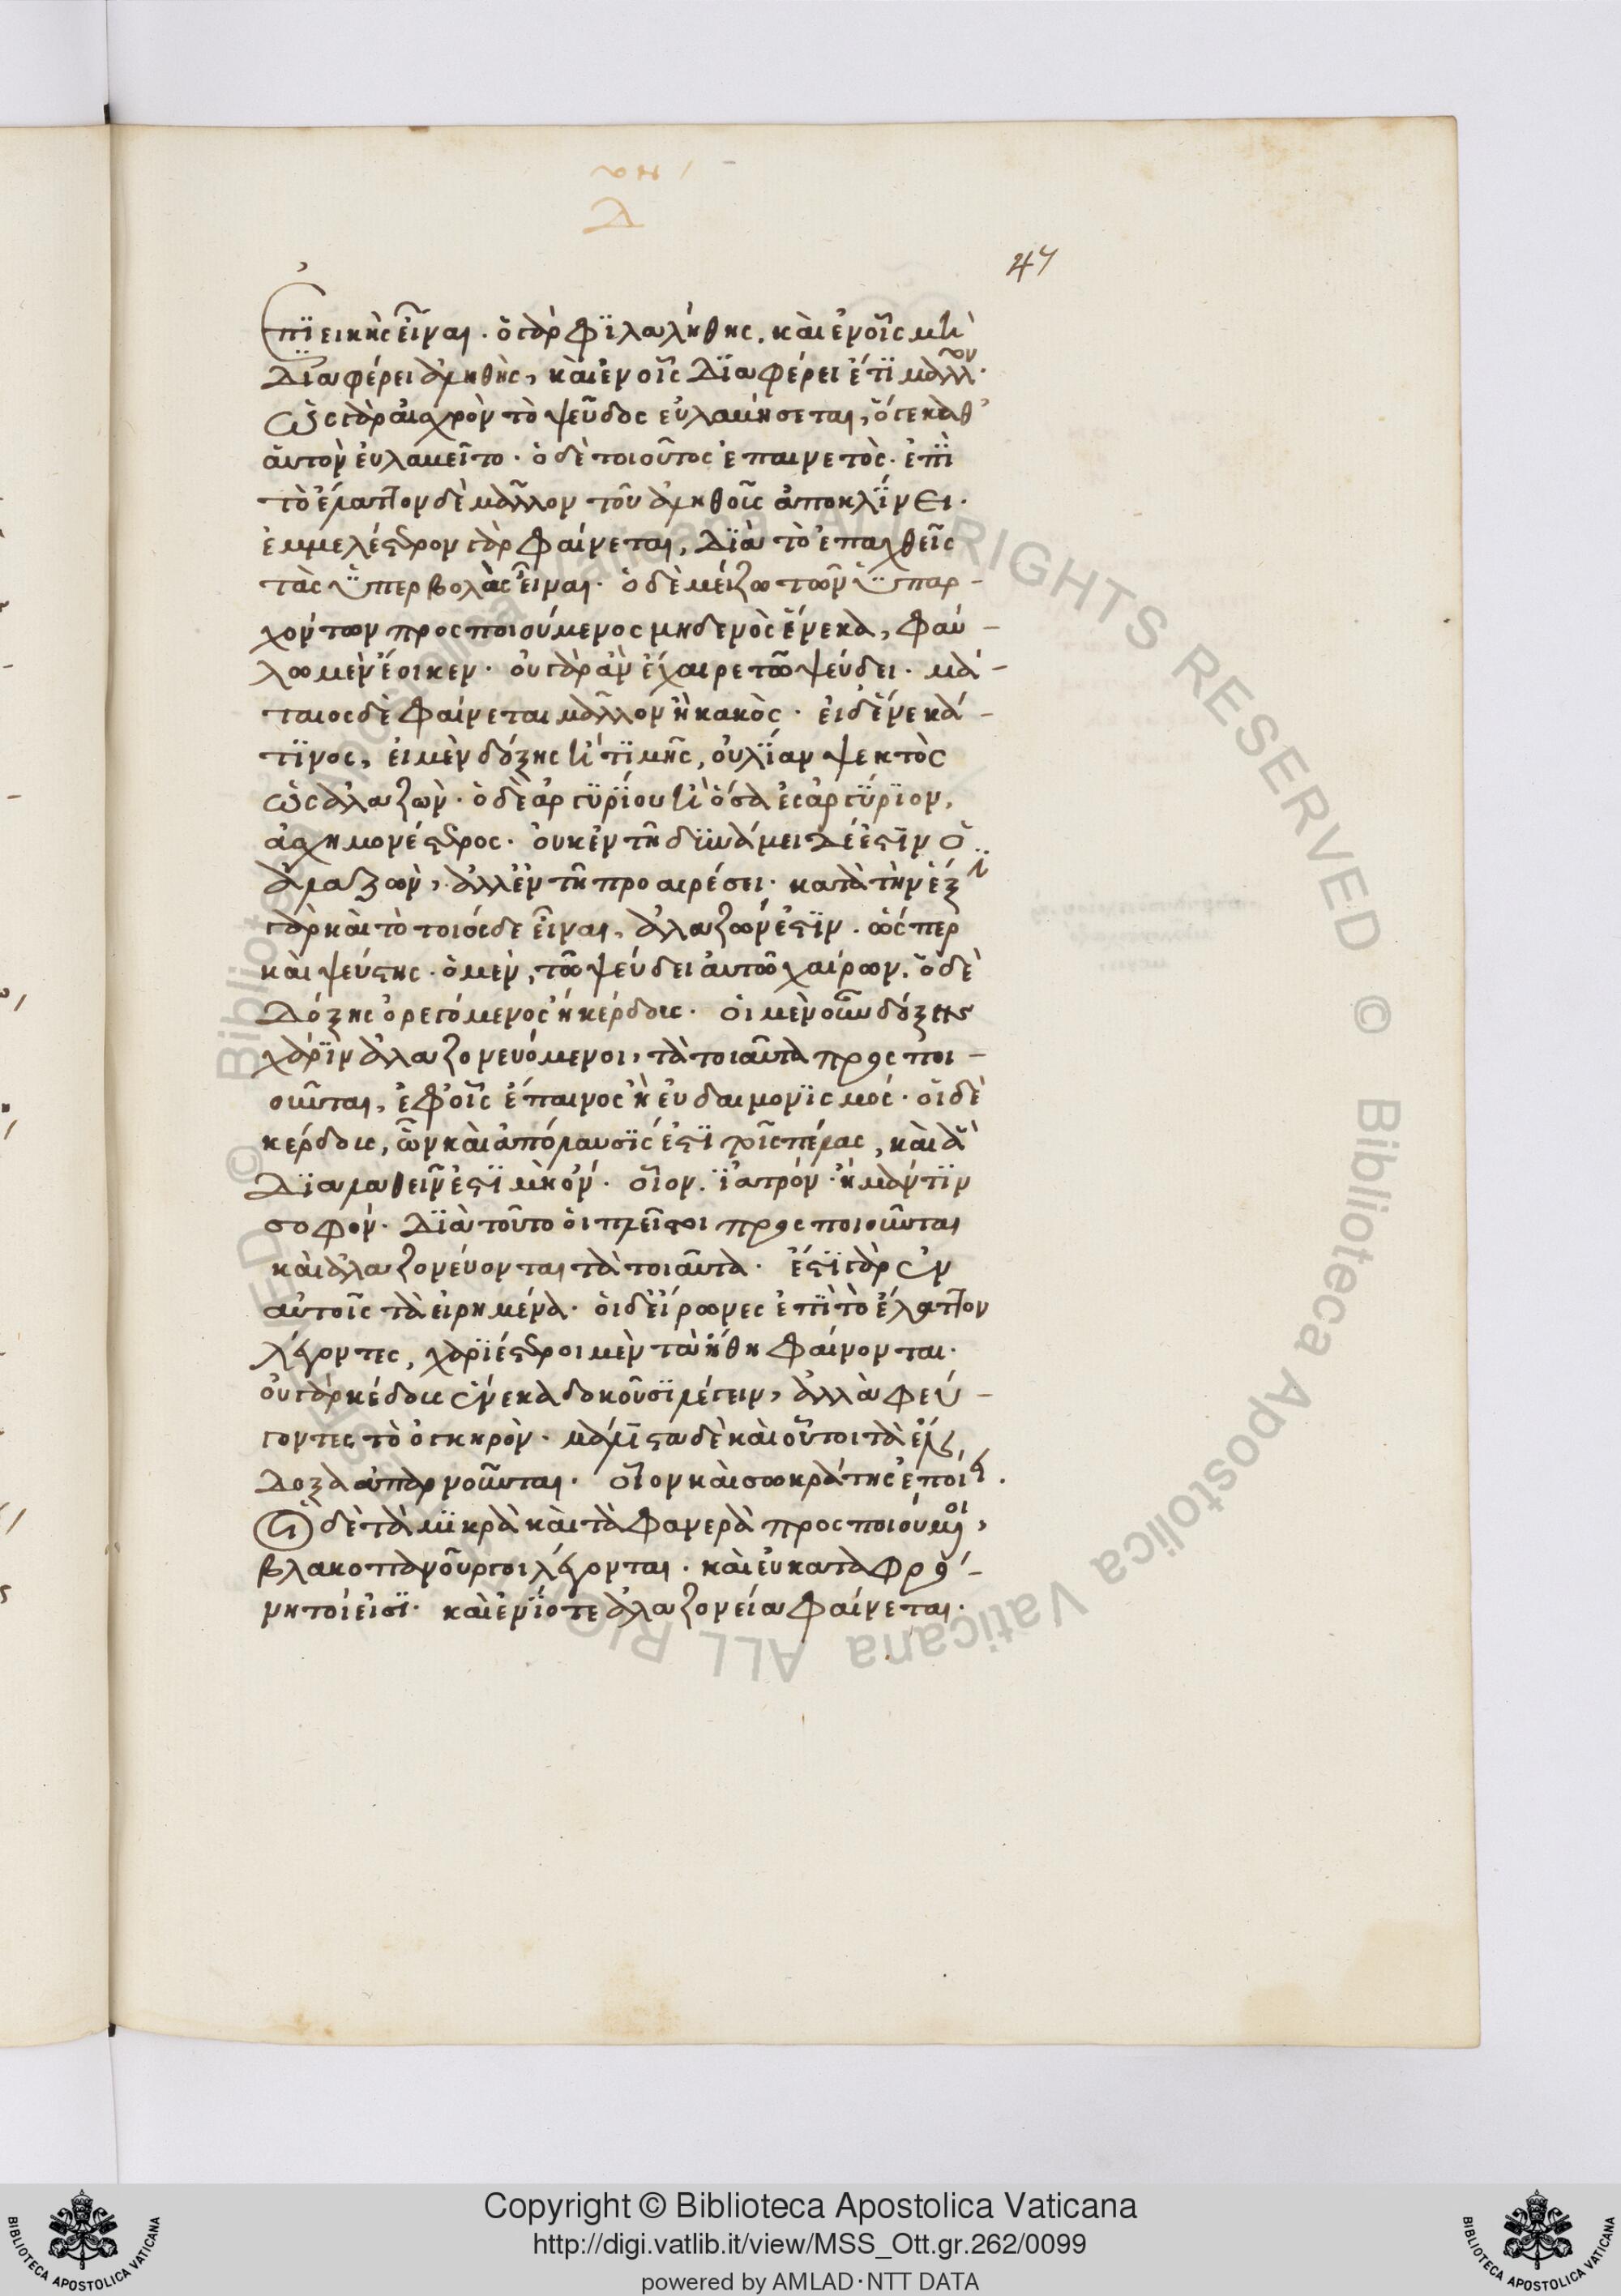 Δ
47
ἐπϊεικὴς εἶναι. ὁ γὰρ φϊλαλήθης, καὶ ἐν οἷς μὴ
Δϊαφέρει ἀληθὴς, καὶ ἐν οἷς Δϊαφέρει ἔτϊ μᾶλλον.
ὡς γὰρ αἰσχρὸν τὸ ψεῦδος εὐλαβήσεται, ὅ γε καθ'
αὑτὸν εὐλαβεῖτο. ὁ δὲ τοιοῦτος ἐπαινετὸς. ἐπϊ
τὸ ἔλαττον δὲ μᾶλλον τοῦ ἀληθοῦς ἀποκλΐνει.
ἐμμελέστερον γὰρ φαίνεται, Δϊὰ τὸ ἐπαχθεῖς
τὰς ϋπερβολὰς εἶναι. ὁ δὲ μείζω τῶν ϋπαρ-
χόντων προσποιούμενος μηδενὸς ἕνεκα, φαύ-
λω μὲν ἔοικεν. οὐ γὰρ ἂν ἔχαιρε τῶ ψεύδει. μά-
ταιος δὲ φαίνεται μᾶλλον ἢ κακὸς. εἰ δ' ἕνεκά-
τϊνος, εἰ μὲν δόξης ἢ τϊμῆς, οὐ λΐαν ψεκτὸς
ὡς ἀλαζὼν. ὁ δὲ ἀργϋρΐου ἢ ὅσα ἐς ἀργϋρϊον,
ἀσχημονέστερος. οὐκ ἐν τῆ δϋνάμει δέ ἐστϊν ὁ
ἀλαζὼν, ἀλλ' ἐν τῆ προαιρέσει. κατὰ τὴν ἕξϊν
γὰρ καὶ τὸ τοιόσδε εἶναι, ἀλαζών ἐστϊν. ὥσπερ
καὶ ψεύστης. ὁ μὲν, τῶ ψεύδει αὐτῶ χαίρων. ὁ δὲ
Δόξης ὀρεγόμενος ἢ κέρδους. οἱ μὲν οὖν δόξης
χάρϊν ἀλαζονευόμενοι, τὰ τοιαῦτα προσποι-
οῦνται, ἐφ' οἷς ἔπαινος ἢ εὐδαιμονϊσμός. οἱ δὲ
κέρδους, ὧν καὶ ἀπόλαυσϊς ἐστϊ τοῖς πέλας, καὶ ἃ
Δϊαλαθεῖν ἐστϊ μὴ ὄν. οἷον. ϊατρόν. ἢ μάντϊν
σοφόν. Δϊὰ τοῦτο οἱ πλεῖστοι προσποιοῦνται
καὶ ἀλαζονεύονται τὰ τοιαῦτα. ἔστϊ γὰρ ἐν
αὐτοῖς τὰ εἰρημένα. οἱ δ' εἴρωνες ἐπϊ τὸ ἔλαττον
λέγοντες, χαρϊέστεροι μὲν τὰ ἤθη φαίνονται.
οὐ γὰρ κέδους ἕνεκα δοκοῦσϊ λέγειν, ἀλλὰ φεύ-
γοντες τὸ ὀγκηρὸν. μάλιστα δὲ καὶ οὗτοι τὰ ἔν
Δοξα ἀπαρνοῦνται. οἷον καὶ σωκράτης ἐποίει.
Οἱ δὲ τὰ μϊκρὰ καὶ τὰ φανερὰ προσποιούμενοι,
βλακοπανοῦργοι λέγονται. καὶ εὐκαταφρό-
νητοί εἰσϊ. καὶ ἐνΐοτε ἀλαζονεία φαίνεται.
Copyright © Biblioteca Apostolica Vaticana
http://digi.vatlib.it/view/MSS_Ott.gr.262/0099
powered by AMLAD·NTT DATA